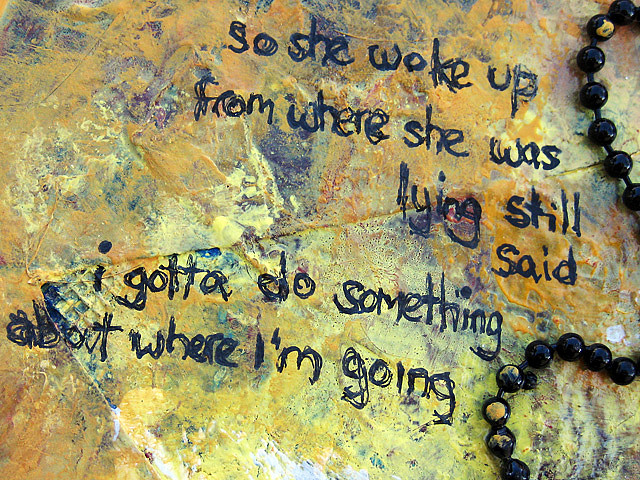 so she woke up
from where she was
lying still
said
i gotta do something
about where I'm going